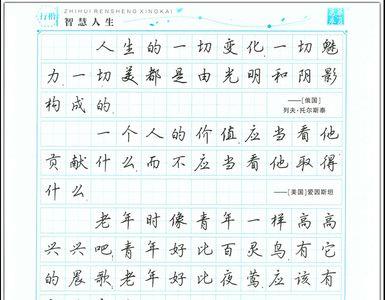 行楷
ZHIHUI RENSHENG XINGKAI
智慧人生
人生的一切变化,一切魅
力,一切美都是由光明和阴影
构成的.
——[俄国]
列夫·托尔斯泰
一个人的价值,应当看他
贡献什么,而不应当看他取得
什么.
——[美国]爱因斯坦
老年时像青年一样高高
兴兴吧,青年好比百灵鸟,有它
的晨歌;老年好比夜莺,应该有